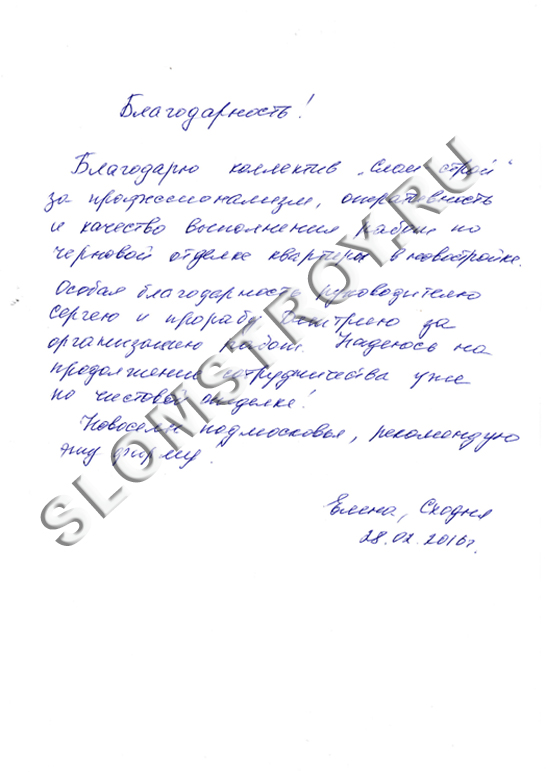 Благодарность!
Благодарю коллектив „Слом строй"
за профессионализм, оперативность
и качество выполнения работ по
черновой отделке квартиры в новостройке.
Особая благодарность руководителю
Сергею и прорабу Дмитрию за
организацию работ. Надеюсь на
продолжение сотрудничества уже
по чистовой отделке!
Новоселы подмосковья, рекомендую
эту фирму.
Елена, Сходня
28.02.2016г.
SLOMSTROY.RU